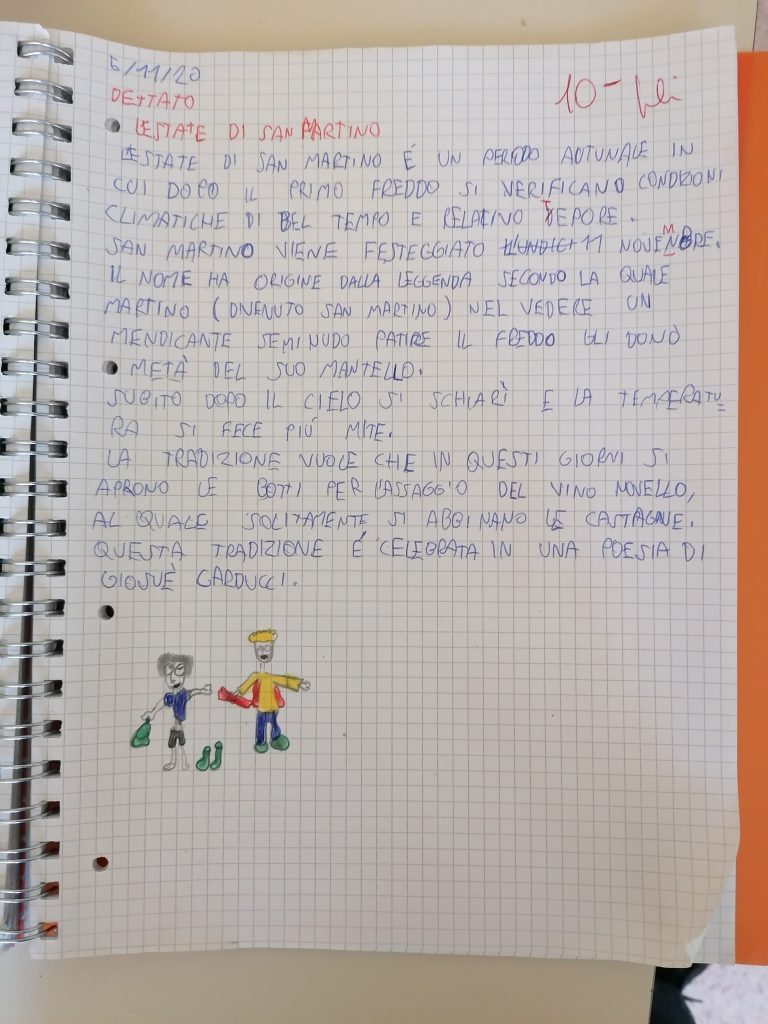 5/11/20
10-
DETTATO
L'ESTATE DI SAN MARTINO
L'ESTATE DI SAN MARTINO É UN PERIODO AUTUNALE IN
CUI DOPO IL PRIMO FREDDO SI VERIFICANO CONDIZIONI
CLIMATICHE DI BEL TEMPO E RELATIVO TEPORE.
SAN MARTINO VIENE FESTEGGIATO 11 NOVEMBRE.
IL NOME HA ORIGINE DALLA LEGGENDA SECONDO LA QUALE
MARTINO (DIVENUTO SAN MARTINO) NEL VEDERE UN
MENDICANTE SEMINUDO PATIRE IL FREDDO GLI DONÒ
METÀ DEL SUO MANTELLO.
SUBITO DOPO IL CIELO SI SCHIARÌ E LA TEMPERATU=
RA SI FECE PIÚ MITE.
LA TRADIZIONE VUOLE CHE IN QUESTI GIORNI SI
APRONO LE BOTTI PER L'ASSAGGIO DEL VINO NOVELLO,
AL QUALE SOLITAMENTE SI ABBINANO LE CASTAGNE.
QUESTA TRADIZIONE É CELEBRATA IN UNA POESIA DI
GIOSUÈ CARDUCCI.